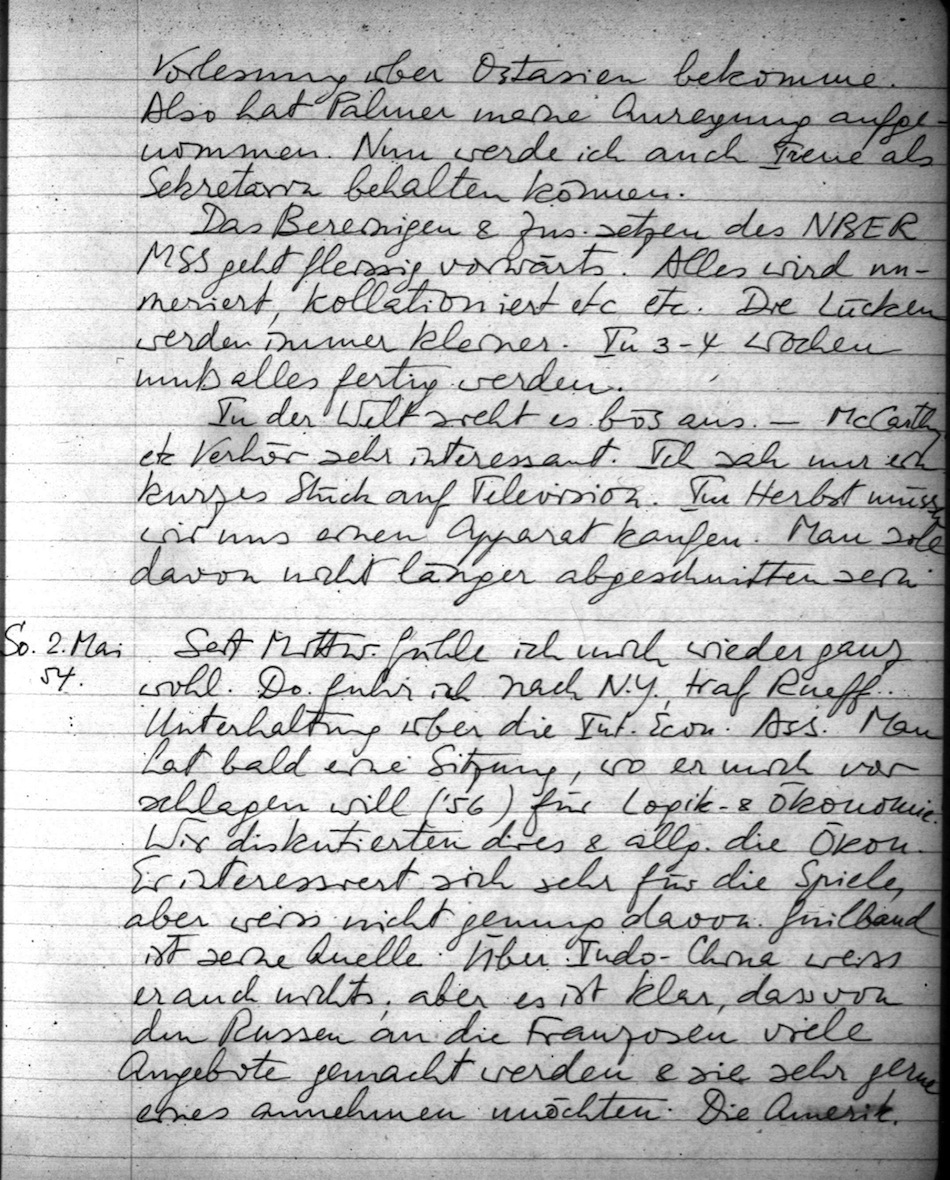 Vorlesung über Ostasien bekomme.
Also hat Palmer meine Anregung aufge-
nommen. Nun werde ich auch Irene als
Sekretärin behalten können.
Das Bereinigen & Zus.setzen des NBER
MSS geht fleissig vorwärts. Alles wird nu-
meriert, kollationiert etc etc. Die Lücken
werden immer kleiner. In 3-4 Wochen
muß alles fertig werden.
In der Welt sieht es bös aus. — McCarthy
etc Verhör sehr interessant. Ich sah nur ein
kurzes Stück auf Television. Im Herbst müssen
wir uns einen Apparat kaufen. Man soll
davon nicht länger abgeschnitten sein
So. 2. Mai
54.
Seit Mittw. fühle ich mich wieder ganz
wohl. Do. fuhr ich nach N.Y, traf Rueff.
Unterhaltung über die Int. Econ. Ass. Man
hat bald eine Sitzung, wo er mich vor
schlagen will ('56) für Logik- & Ökonomie.
Wir diskutierten dies & allg. die Ökon.
Er interessiert sich sehr für die Spiele,
aber weiss nicht genug davon. Guilbaud
ist seine Quelle. Über Indo-China weiss
er auch nichts, aber es ist klar, dass von
den Russen an die Franzosen viele
Angebote gemacht werden & sie sehr gerne
eines annehmen möchten. Die Amerik.